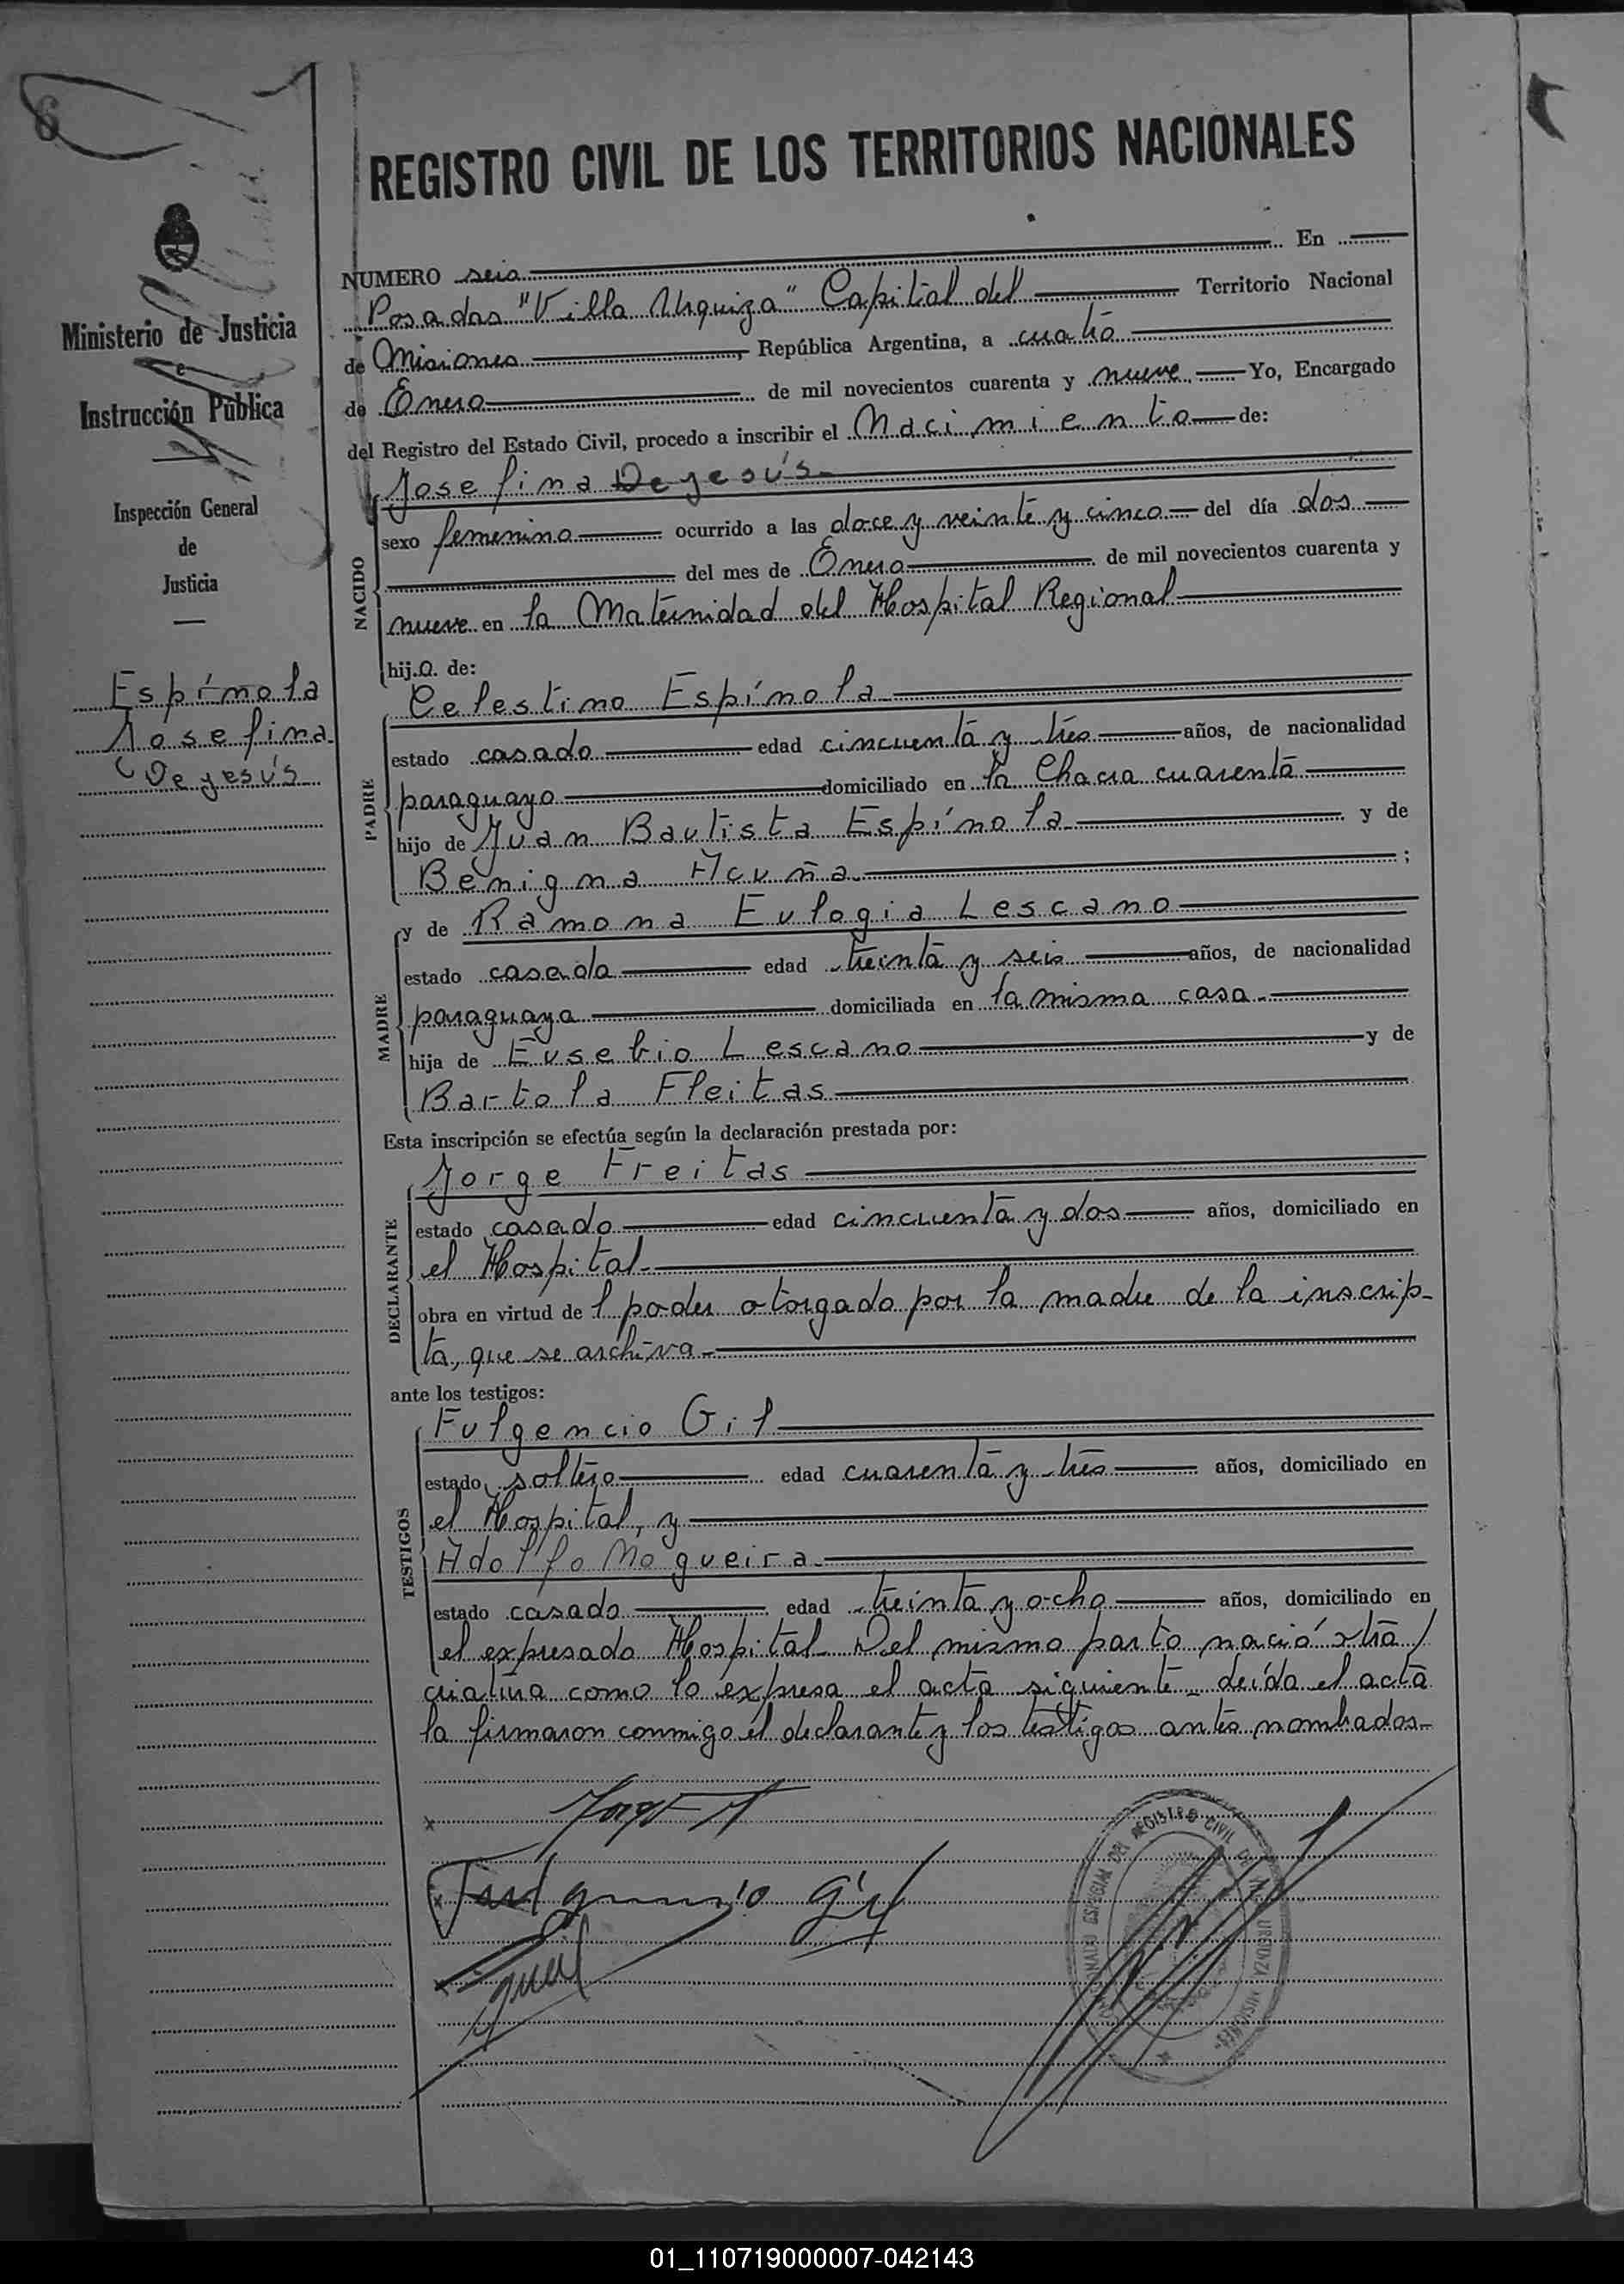 6
REGISTRO CIVIL DE LOS TERRITORIOS NACIONALES
NUMERO seis En
Posadas "Villa Urquiza" Capital del Territorio Nacional
de Misiones, República Argentina, a cuatro
de Enero de mil novecientos cuarenta y nueve Yo, Encargado
del Registro del Estado Civil, procedo a inscribir el Nacimiento de:
Josefina Dejesús
sexo femenino ocurrido a las doce y veinte y cinco del día dos
del mes de Enero de mil novecientos cuarenta y
nueve en la Maternidad del Hospital Regional
hija de:
Celestino Espínola
estado casado edad cincuenta y tres años, de nacionalidad
paraguayo domiciliado en la Chacra cuarenta
hijo de Juan Bautista Espínola y de
Benigna Acuña ;
y de Ramona Eulogia Lescano
estado casada edad treinta y seis años, de nacionalidad
paraguaya domiciliada en la misma casa
hija de Eusebio Lescano y de
Bartola Fleitas
Esta inscripción se efectúa según la declaración prestada por:
Jorge Freitas
estado casado edad cincuenta y dos años, domiciliado en
el Hospital
obra en virtud de l poder otorgado por la madre de la inscrip-
ta, que se archiva
ante los testigos:
Fulgencio Gil
estado soltero edad cuarenta y tres años, domiciliado en
el Hospital, y
Adolfo Nogueira
estado casado edad treinta y ocho años, domiciliado en
el expresado Hospital Del mismo parto nació otra
criatura como lo expresa el acta siguiente leída el acta
la firmaron conmigo el declarante y los testigos antes nombrados
NACIDO
PADRE
MADRE
DECLARANTE
TESTIGOS
Ministerio de Justicia
e
Instrucción Pública
Inspección General
de
Justicia
Espínola
Josefina
Dejesús
Fulgencio Gil
DEL REGISTRO CIVIL
MISIONES
01_110719000007-042143